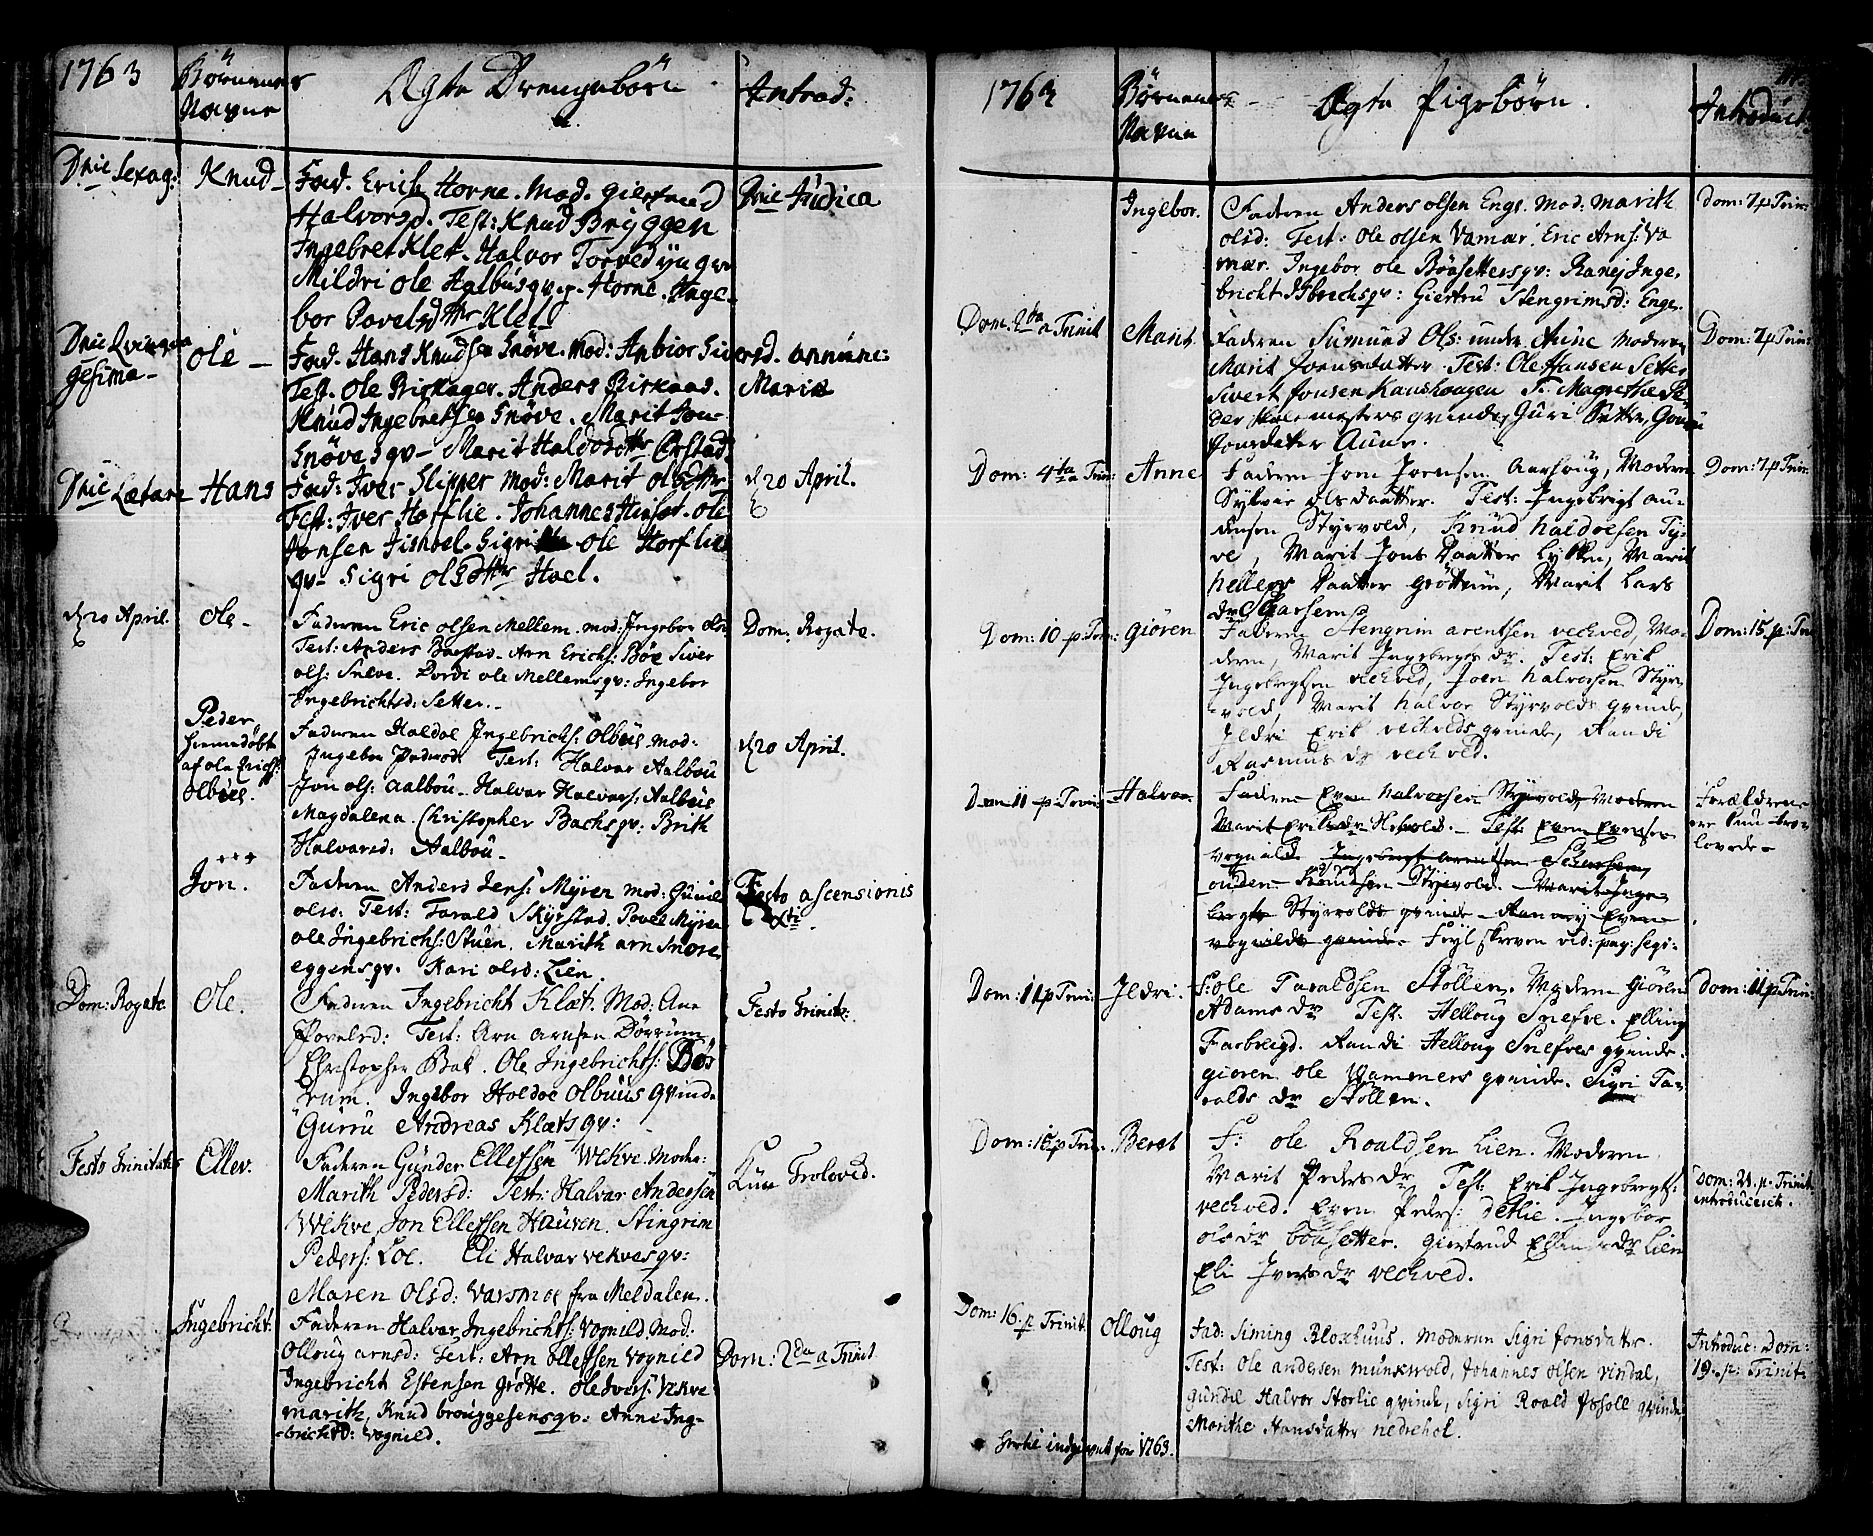 1763
Børnenes
Navne
Ægte Drengebørn
Introd:
Dnic Sexag:
Knud
Fad. Erich Horne. Mod. Giertrud
Halvorsd. Test: Knud Bryggen
Ingebret Klet. Halvor Torve
Mildri Ole Halbus qv. Horne. Inge-
bor Povelsdttr Klet
Dnic Judica
Dnic Qvinqva
gesima
Ole
Fad. Hans Knudsen Snøve. Mod: Anbior Siversd.
Test. Ole Brickager. Anders Birkaas.
Knud Ingebretsen Snøve. Marit Jon
Snøves qv. Marit Haldosdttr Ørstad
annunc:
Mariæ
Dnic Lætare
Hans
Fad: Iver Slipper Mod: Marit Olsdttr
Test: Iver Horflie. Johannes Ole
Jonsen Sigri Ole Horflie
qv. Sigri Olsdttr Hoel.
d 20 April.
d 20 April.
Ole
Faderen Eric Olsen Mellem. Mod: Ingebor Olsd
Test: Anders Arn Erichs: Bøe Siver
Ols: Sneve. Dordi Ole Mellems qv: Ingebor
Ingebrichtsd: Setter.
Dom: Rogate.
Peder
hiemedøbt
af Ole Erichs:
Olbues.
Faderen Haldoe Ingebrichs: Olbues. Mod:
Ingebor Pedersd. Test: Halvar Aalbou
Jon Ols: Aalbou. Halvar Halvars: Aalbous
Magdalena Christopher Bachs qv: Brith
Halvarsd: Aalbou
d 20 April.
+++
Jon.
Faderen Anders Jens: Myren Mod: Gunil
Olsd: Test: Farald Skyrstad. Povel Myren
Ole Ingebrichs: Stuen. Marith Arn Snove
eggens qv. Kari Olsd: Lien.
Festo ascensionis
Xti.
Dom: Rogate
Ole.
Faderen Ingebricht Klæt. Mod: Ane
Povelsd: Test: Arn Arnsen Dørrum
Christopher Bak. Ole Ingebrichts: Dør
rum. Ingebor Holdoe Olbuus Qvinde
Gurru Andreas Klæts qv:
Festo Trinit:
Festo Trinitatis
Ellev.
Faderen Gunder Ellefsen Wekve. Moder:
Marith Pedersd: Test: Halvar Andersen
Wekve. Jon Ellefsen Hauven. Stingrim
Peders: Loe. Eli Halvar Vekves qv:
Maren Olsd: Varsmoe fra Meldalen.
Kun Trolovid.
Ingebricht.
Faderen Halvar Ingebrichts: Vognild Mod:
Olloug Arnsd: Test: Arn Ollefsen Vognild
Ingebricht Estensen Grøtte. Ole Ivers: Vekve
Marith Knud brouggesens qv: Anne Ing-
brichtD: Vognild.
Dom: 2da a Trinit
1763
Børnenes
Navne
Ægte Pigebørn.
Introduct:
Ingebor.
Faderen Anders Olsen Enge. Mod: Marith
Olsd: Test: Ole Olsen Vamær. Eric Arns: Va
mær. Ingebor Ole Bøasetters qv: Ranej Inge,
bricht qv: Giertru Stengrimsd: Enge.
Dom: 7 p Trin:
Dom: 2da a Trinit
Marit.
Faderen Simund Ols: under Aune Moderen
Marit Jonsdatter. Test: Ole Hansen Setter
Sivert Jonsen Kaushougen Magrethe
der skolemesters qvinde, Guri Sætter,
Jonsdatter Aune.
Dom: 7 p Trin:
Dom: 4ta a Trin:
Anne
Faderen Jom Jornsen Aarhoug, Moderen
Sykvar Olsdaatter. Test: Ingebrigt Au-
densen Styrvold, Knud Haldoesen Ty-
ve, Marit Jons Daatter Lykken, Marit
Hellers Daatter Grøttum, Marit Lars
dr Skarsem.
Dom: 7 p Trin:
Dom: 10 p: Trin:
Giøren
Faderen Stengrim Arentsen Vechved, Mo-
deren, Marit Ingebregts dr. Test: Erik
Ingebregtsen Vechved, Joen Halvorsen Styr-
vold, Marit Halvor Styrvolds qvinde,
Jldri Erik Vechveds qvinde, Randi
Rasmus dr Vechved.
Dom: 15 p: Trin
Dom 11 p Trin:
Halvor
Faderen Even Halvorsen Styrvold, Moderen
Marit Eriksdr Hevold. Test: Even Evensen
Vognild. Ingebregt Arentsen Skarsem,
ouden Knudsen Styrvold. Marit Inge-
bregts Styrvolds qvinde Ranney Even
Vognilds qvinde. Fejl skreven vid: pag: segv:
Forældrene
ere kun tro-
lovede
Dom: 11 p Trin:
Jldri.
F: Ole Taraldsen Stöllen. Moderen Giören
Adams dr Test. Helloug Snefve. Elling
Farbregd. Randi Helloug Snefves qvinde.
Giøren Ole Vammers qvinde. Sigri Ta-
ralds dr Støllen.
Dom: 11 p Trin:
Dom: 15 p Trin.
Beret
F: Ole Roaldsen Lien. Moderen
Marit Peders dr. Test: Erik Ingebregts:
Vechved. Even Peders: Detlie. Ingebor
Ols dr Böasetter. Giertrud Ellings dr Lien
Eli Ivers dr Vechved.
Dom: 21. p. Trinit
introduceret.
Dom: 16. p Trinit.
Olloug
Fad: Siming Bloxhuus. Moderen Sigri Jonsdatter.
Test: Ole Andersen Munkvold, Johannes Olsen Vindal,
Gundil Halvor Storlie qvinde, Sigri Roald Posoll Qvinde
Marthe Hansdatter Nedrehol.
Introduc: Dom:
19. p: Trinit.
hertil indgivet for 1763.